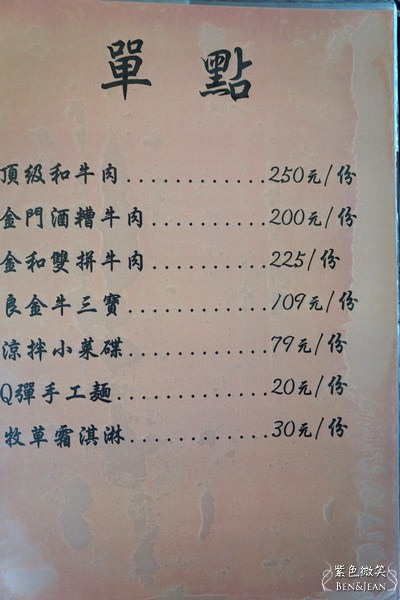 單點
頂級和牛肉............250元/份
金門酒糟牛肉...........200元/份
金和雙拼牛肉...........225/份
良金牛三寶.............109元/份
涼拌小菜碟.............79元/份
Q彈手工麵..............20元/份
牧草霜淇淋.............30元/份
紫色微笑
BEN&JEAN